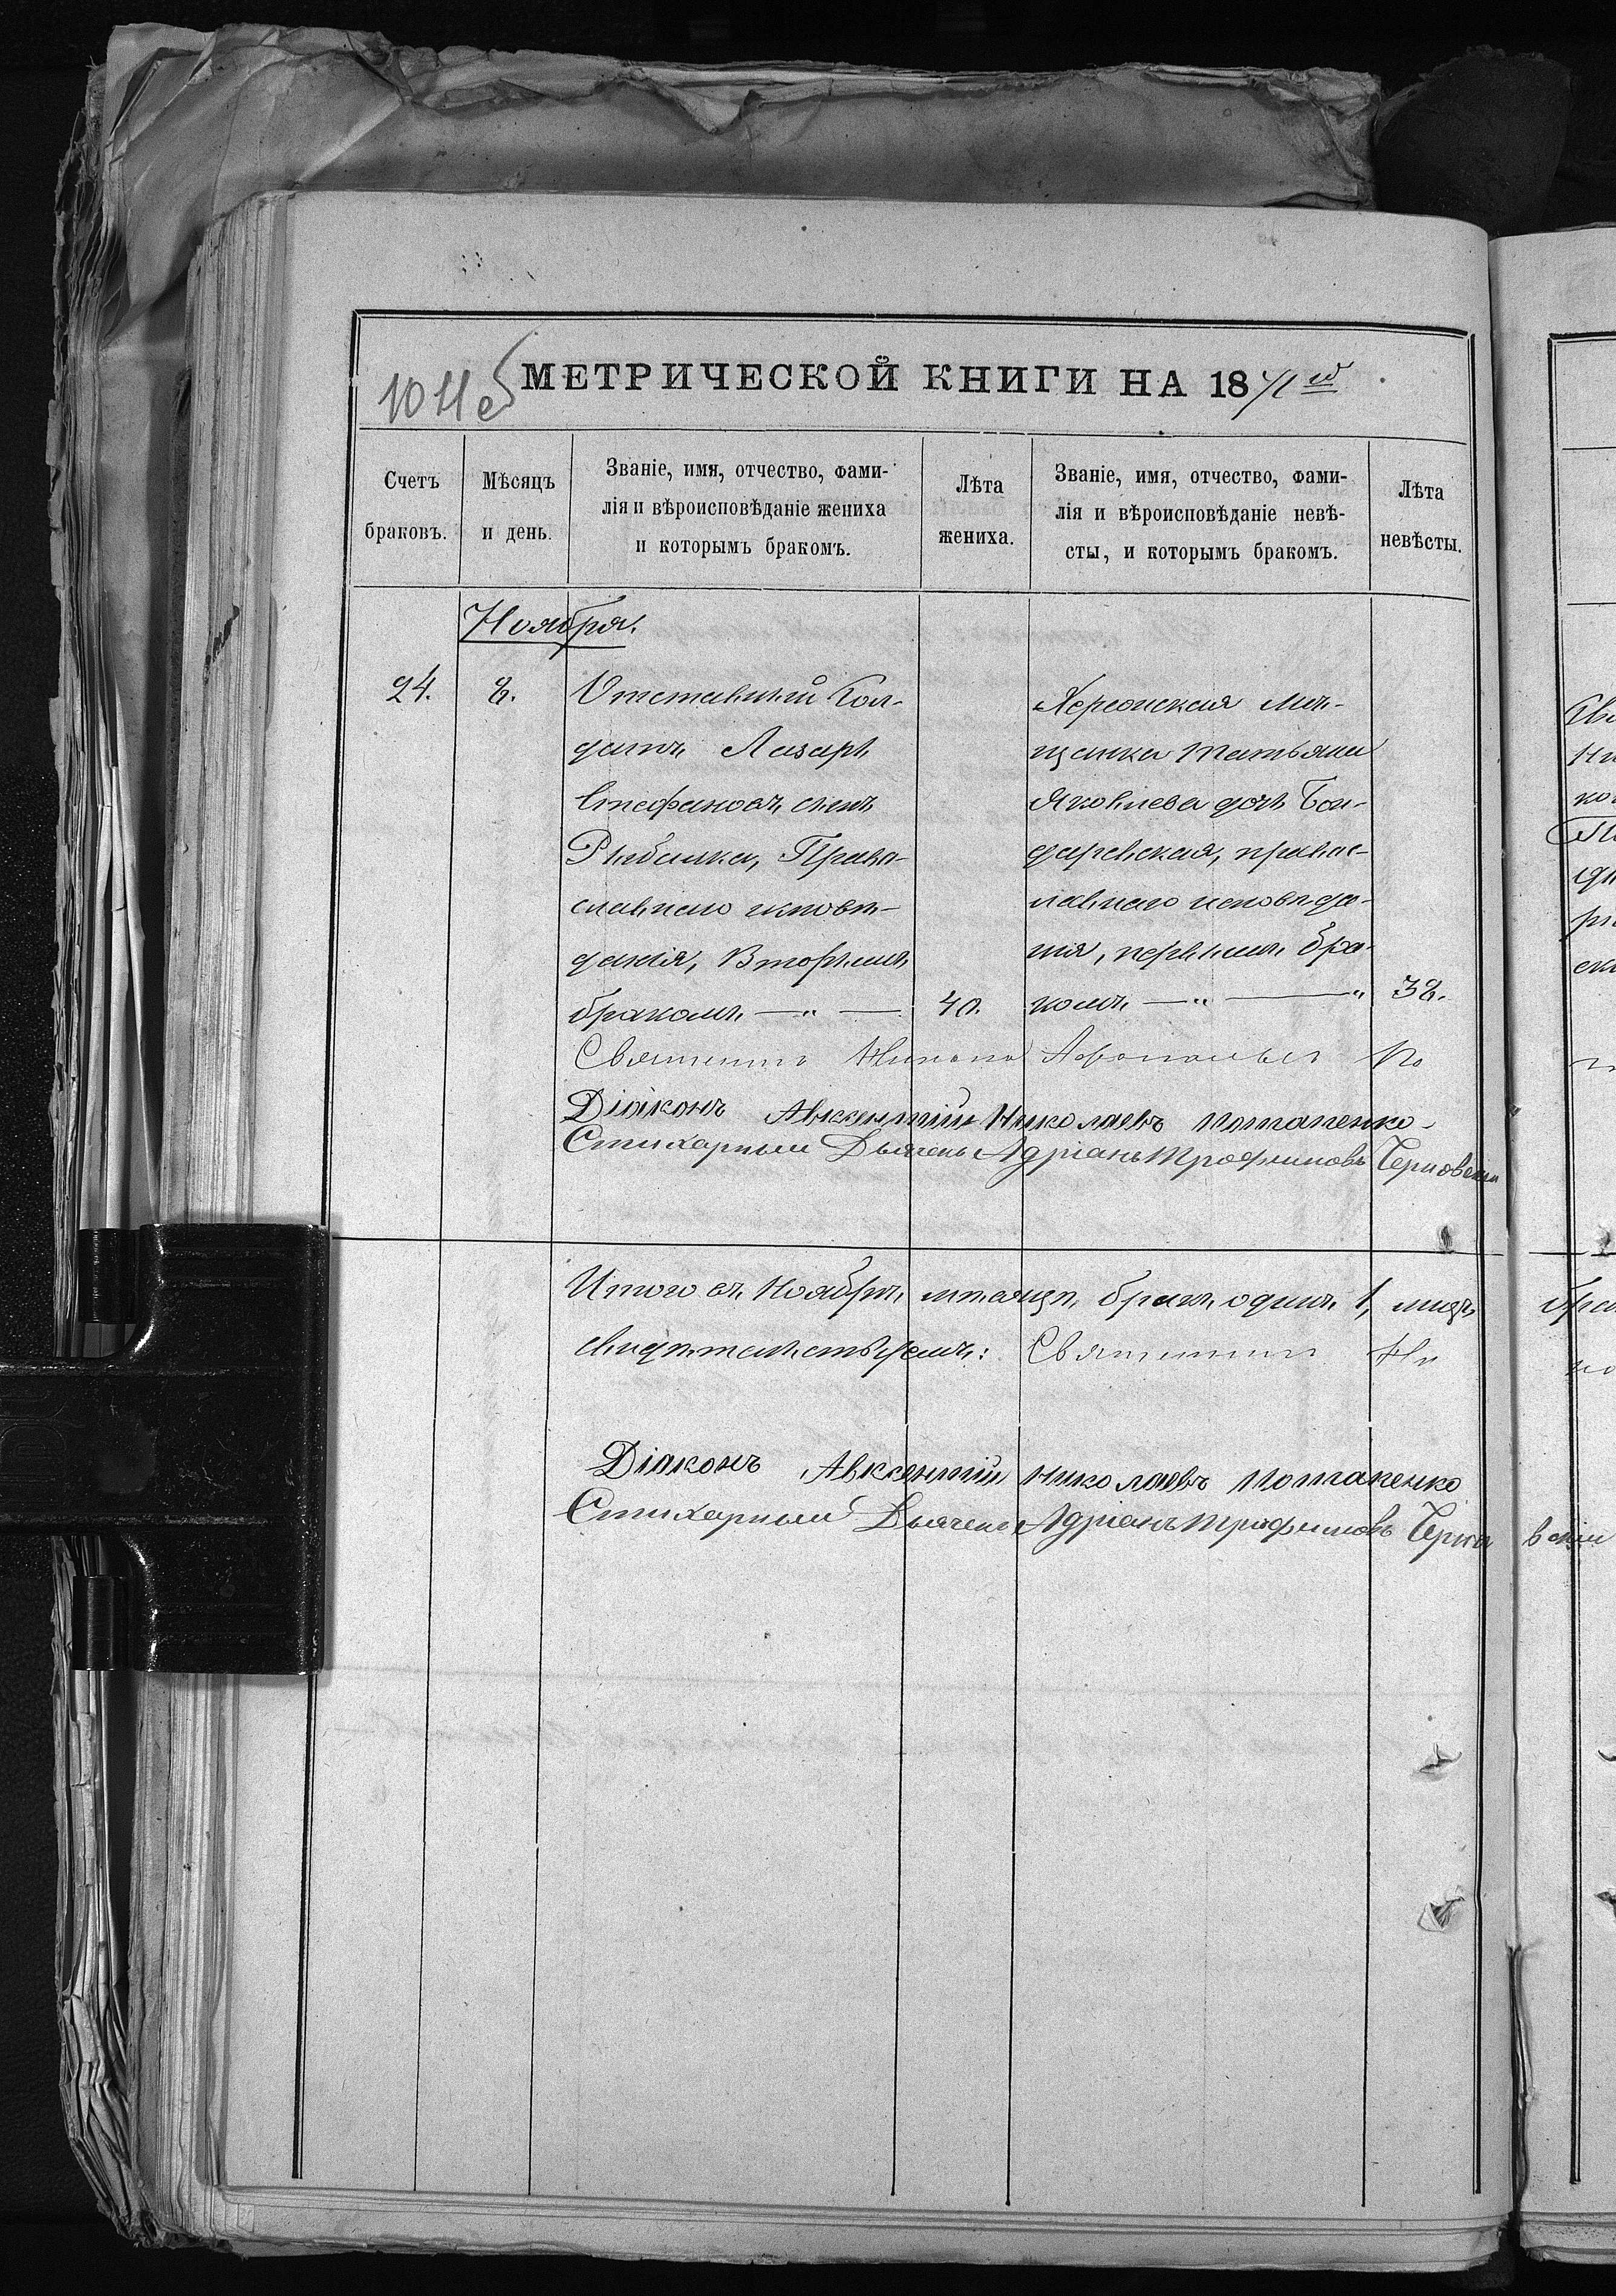 МЕТРИЧЕСКОЙ КНИГИ НА 1871й
Счетъ браковъ.
Мѣсяцъ и день.
Званіе, имя, отчество, фами-
лія и вѣроисповѣданіе жениха
и которымъ бракомъ.
Лѣта жениха.
Званіе, имя, отчество, фами-
лія и вѣроисповѣданіе невѣ-
сты, и которымъ бракомъ.
Лѣта невѣсты.
Ноября.
24.
8.
Отставный Сол-
датъ Лазарь
Стефановъ сынъ
Рыбалка, Право-
славнаго исповѣ-
данія, Вторымъ
бракомъ — „ —
40.
Херсонская Мѣ-
щанка Татьяна
Яковлева дочь Бон-
даревская, правос-
лавнаго исповѣда-
нія, первымъ бра-
комъ — „ — „
38.
Священникъ
Діаконъ Авксентій Николаевъ Потапенко
Стихарный Дьячекъ Адріанъ Трофимовъ Черновскій
Итого въ Ноябрѣ мѣсяцѣ бракъ одинъ 1,
свидѣтельствуемъ: Священникъ
Діаконъ Авксентій Николаевъ Потапенко
Стихарный Дьячекъ Адріанъ Трофимовъ Черновскій